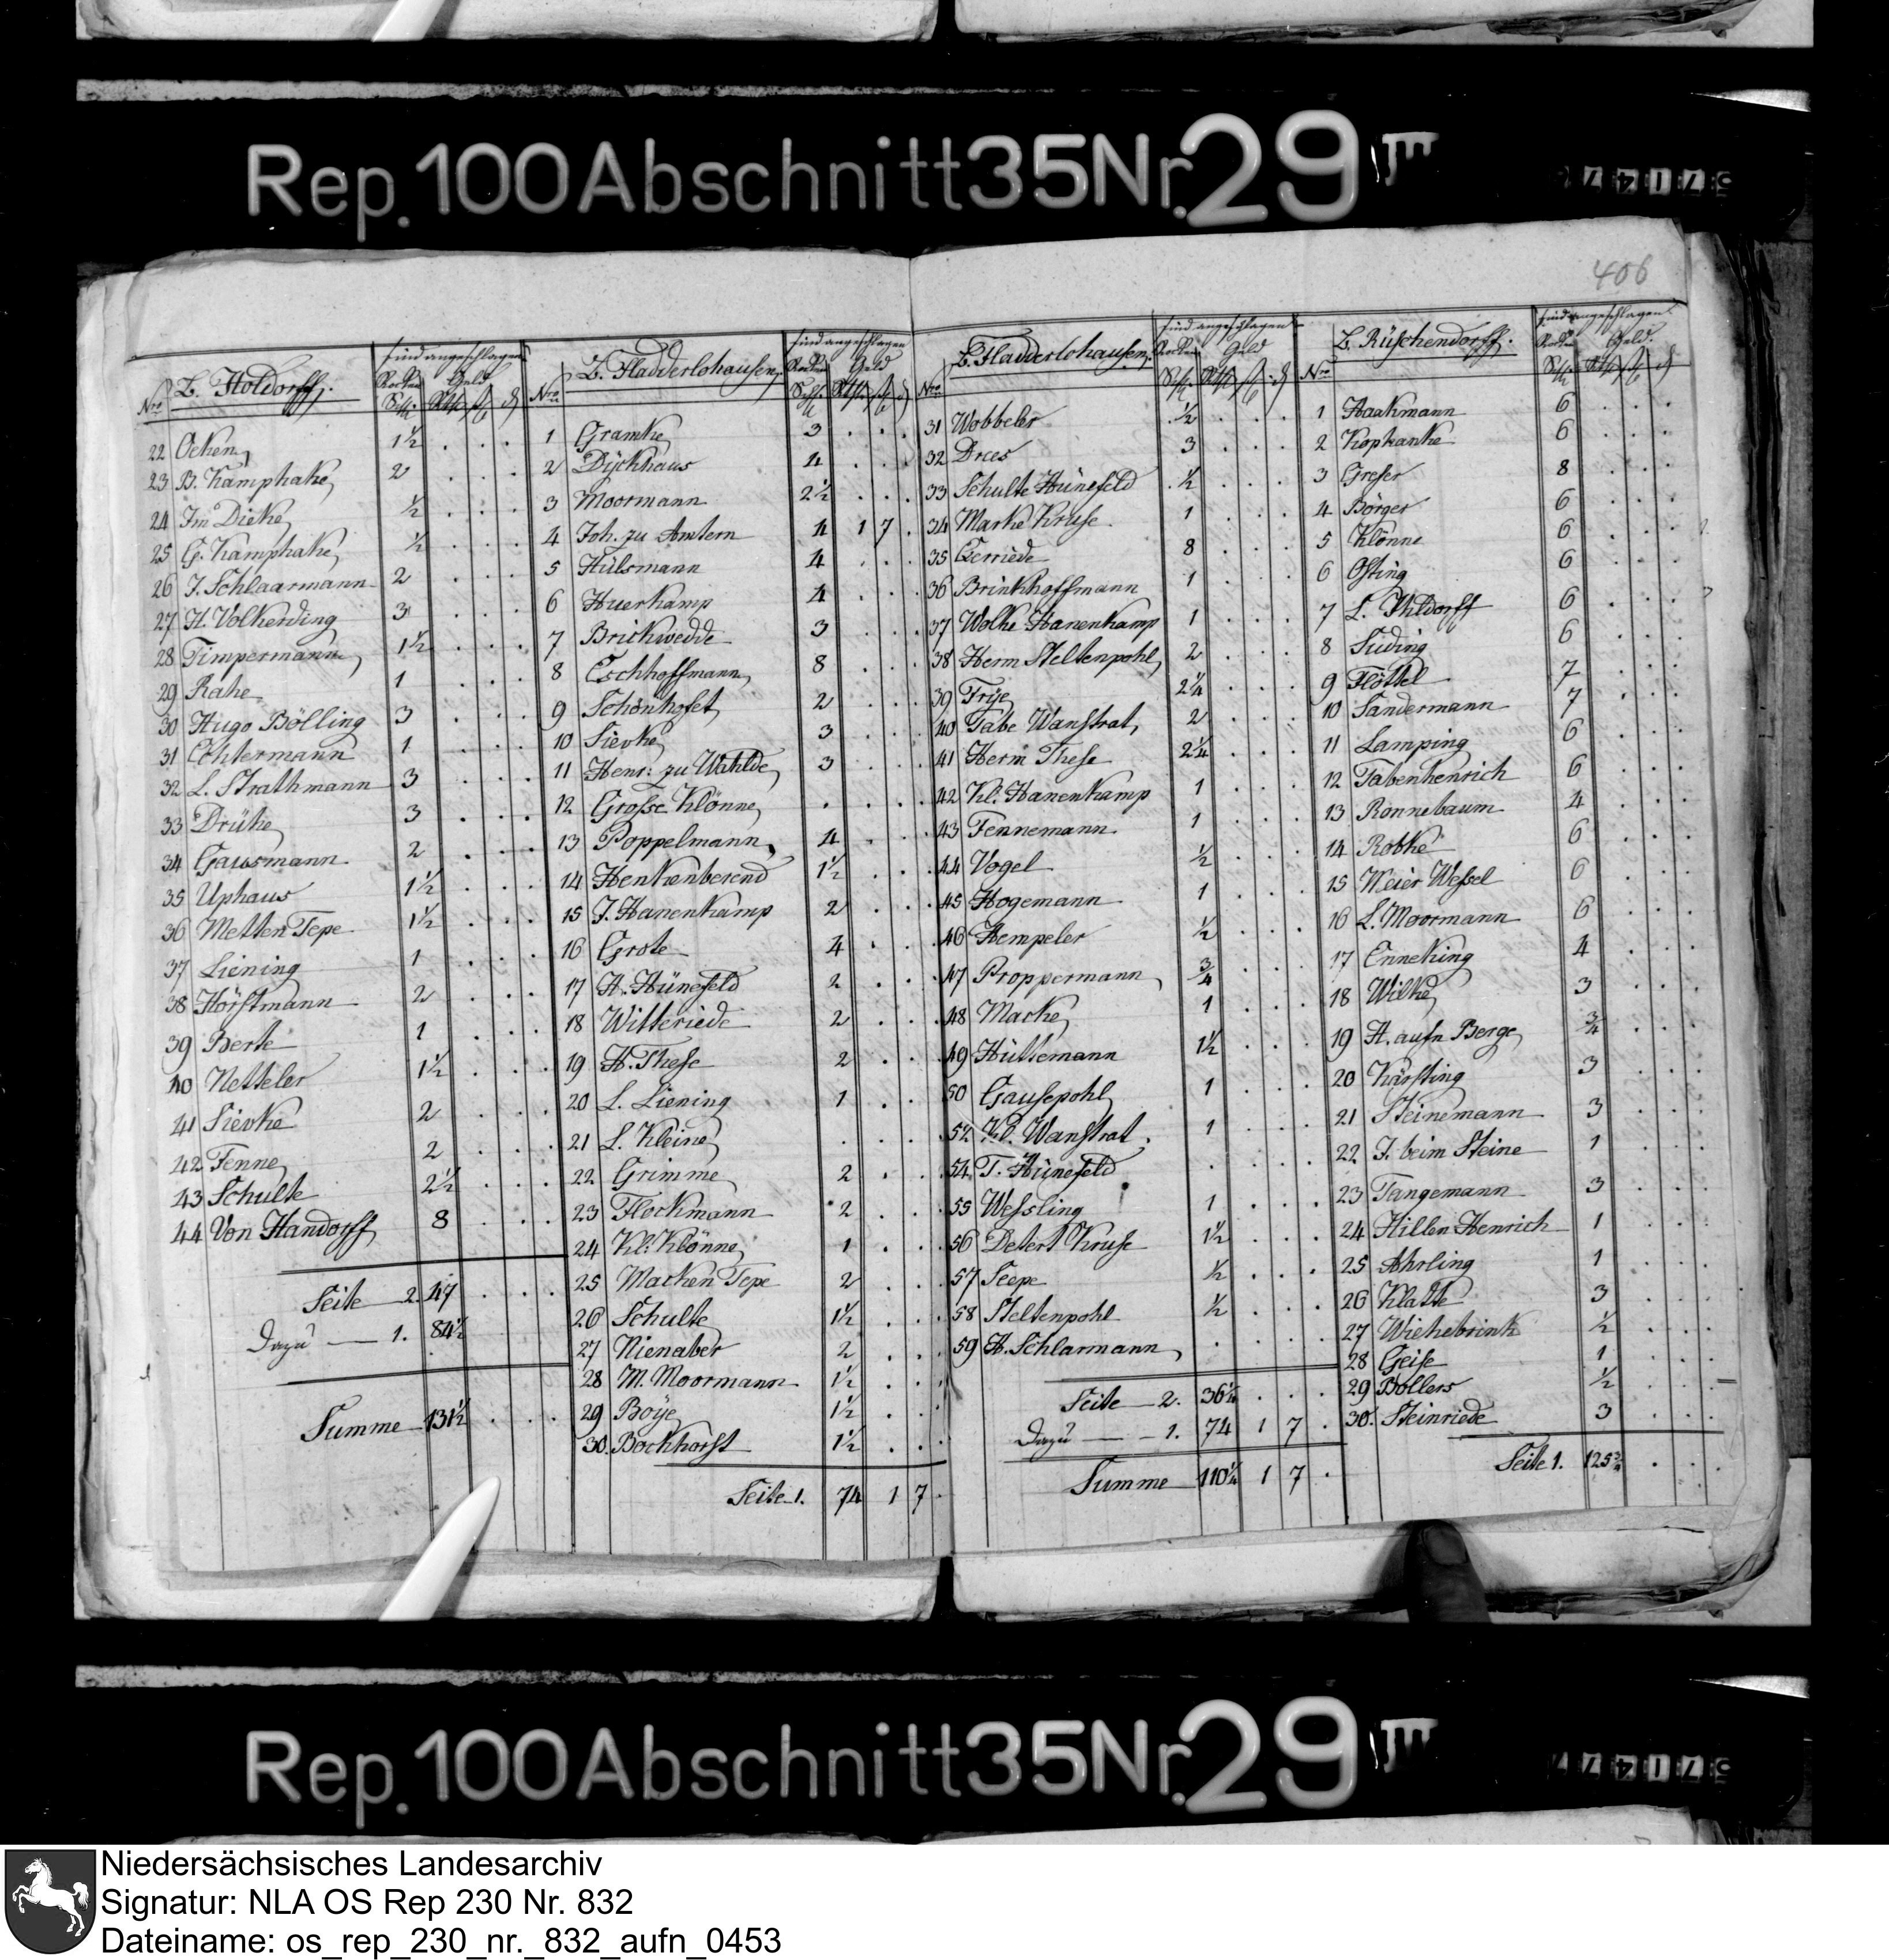 Rep. 100 Abschnitt 35 Nr. 29 III
406
Nro B. Holdorff.
sind angeschlagen
Rocken Geld
22 Ocken 1½ . . .
23 B. Kamphake 2 . . .
24 Jm Dieke ½ . . .
25 G. Kamphake ½ . . .
26 J. Schlaarmann 2 . . .
27 H. Volkerding 3 . . .
28 Timpermann 1½ . . .
29 Rahe 1 . . .
30 Hugo Bölling 3 . . .
31 Echtermann 1 . . .
32 L. Strathmann 3 . . .
33 Drühe 3 . . .
34 Gausmann 2 . . .
35 Uphaus 1½ . . .
36 Metten Tepe 1½ . . .
37 Liening 1 . . .
38 Hörstmann 2 . . .
39 Berte 1 . . .
40 Netteler 1½ . . .
41 Sievke 2 . . .
42 Fenne 2 . . .
43 Schulte 2½ . . .
44 Von Handorff 8 . . .
Seite 2. 47 . . .
Dazu — 1. 84½
Summe 131½ . . .
Nro B. Fladderlohausen
sind angeschlagen
Rocken Geld
1 Gramke 3 . . .
2 Dÿckhaus 4 . . .
3 Moormann 2½ . . .
4 Joh. zu Amtern 4 1 7 .
5 Hülsmann 4 . . .
6 Huerkamp 4 . . .
7 Brickwedde 3 . . .
8 Eschhoffmann 8 . . .
9 Schönhofet 2 . . .
10 Sievke 3 . . .
11 Henr: zu Wahlde 3 . . .
12 Grosse Klönne . . . .
13 Poppelmann 4 . . .
14 Henkenberend 1½ . . .
15 J. Hanenkamp 2 . . .
16 Grote 4 . . .
17 H. Hünefeld 2 . . .
18 Witteriede 2 . . .
19 H. These 2 . . .
20 L. Liening 1 . . .
21 L. Kleine . . . .
22 Grimme 2 . . .
23 Flockmann 2 . . .
24 Kl. Klönne 1 . . .
25 Macken Tepe 2 . . .
26 Schulte 1½ . . .
27 Nienaber 2 . . .
28 M. Moormann 1½ . . .
29 Böÿe 1½ . . .
30. Bockhorst 1½ . . .
Seite 1. 74 1 7 .
Nro B. Fladderlohausen.
sind angeschlagen
Rocken Geld
31 Wobbeler ½ . . .
32 Drees 3 . . .
33 Schulte Hünefeld ½ . . .
34 Marke Kruse 1 . . .
35 Eerriede 8 . . .
36 Brinkhoffmann 1 . . .
37 Wolke Hanenkamp 1 . . .
38 Herm Steltenpohl 2 . . .
39 Frÿe 2¼ . . .
40 Tabe Wanstrat 2 . . .
41 Herm These 2¼ . . .
42 Kl. Hanenkamp 1 . . .
43 Fennemann 1 . . .
44 Vogel ½ . . .
45 Hogemann 1 . . .
46 Hempeler ½ . . .
47 Proppermann ¾ . . .
48 Macke 1 . . .
49 Hüttemann 1½ . . .
50 Gausepohl 1 . . .
52 Kl. Wanstrat 1 . . .
54 T. Hünefeld . . . .
55 Wessling 1 . . .
56 Detert Kruse 1½ . . .
57 Seepe ½ . . .
58 Steltenpohl ½ . . .
59 H. Schlarmann . . . .
Seite 2. 36¼ . . .
Dazu — 1. 74 1 7 .
Summe 110¼ 1 7 .
Nro B. Rüschendorff.
sind angeschlagen.
Rocken Geld.
1 Haakmann 6 . . .
2 Kopkanke 6 . . .
3 Greser 8 . . .
4 Börger 6 . . .
5 Klönne 6 . . .
6 Osting 6 . . .
7 L. Uhldorff 6 . . .
8 Suding 6 . . .
9 Flöttel 7 . . .
10 Sandermann 7 . . .
11 Lamping 6 . . .
12 Tabenhenrich 6 . . .
13 Ronnebaum 4 . . .
14 Robke 6 . . .
15 Meier Wessel 6 . . .
16 L. Moormann 6 . . .
17 Enneking 4 . . .
18 Wilke 3 . . .
19 H. aufn Berge ¾ . . .
20 Kärsting 3 . . .
21 Steinemann 3 . . .
22 J. beim Steine 1 . . .
23 Tangemann 3 . . .
24 Hillen Henrich 1 . . .
25 Ahrling 1 . . .
26 Klatte 3 . . .
27 Wiehebrink ½ . . .
28 Geise 1 . . .
29 Bollers ½ . . .
30. Steinriede 3 . . .
Seite 1. 125¾ . . .
Rep. 100 Abschnitt 35 Nr. 29 III
Niedersächsisches Landesarchiv
Signatur: NLA OS Rep 230 Nr. 832
Dateiname: os_rep_230_nr._832_aufn_0453